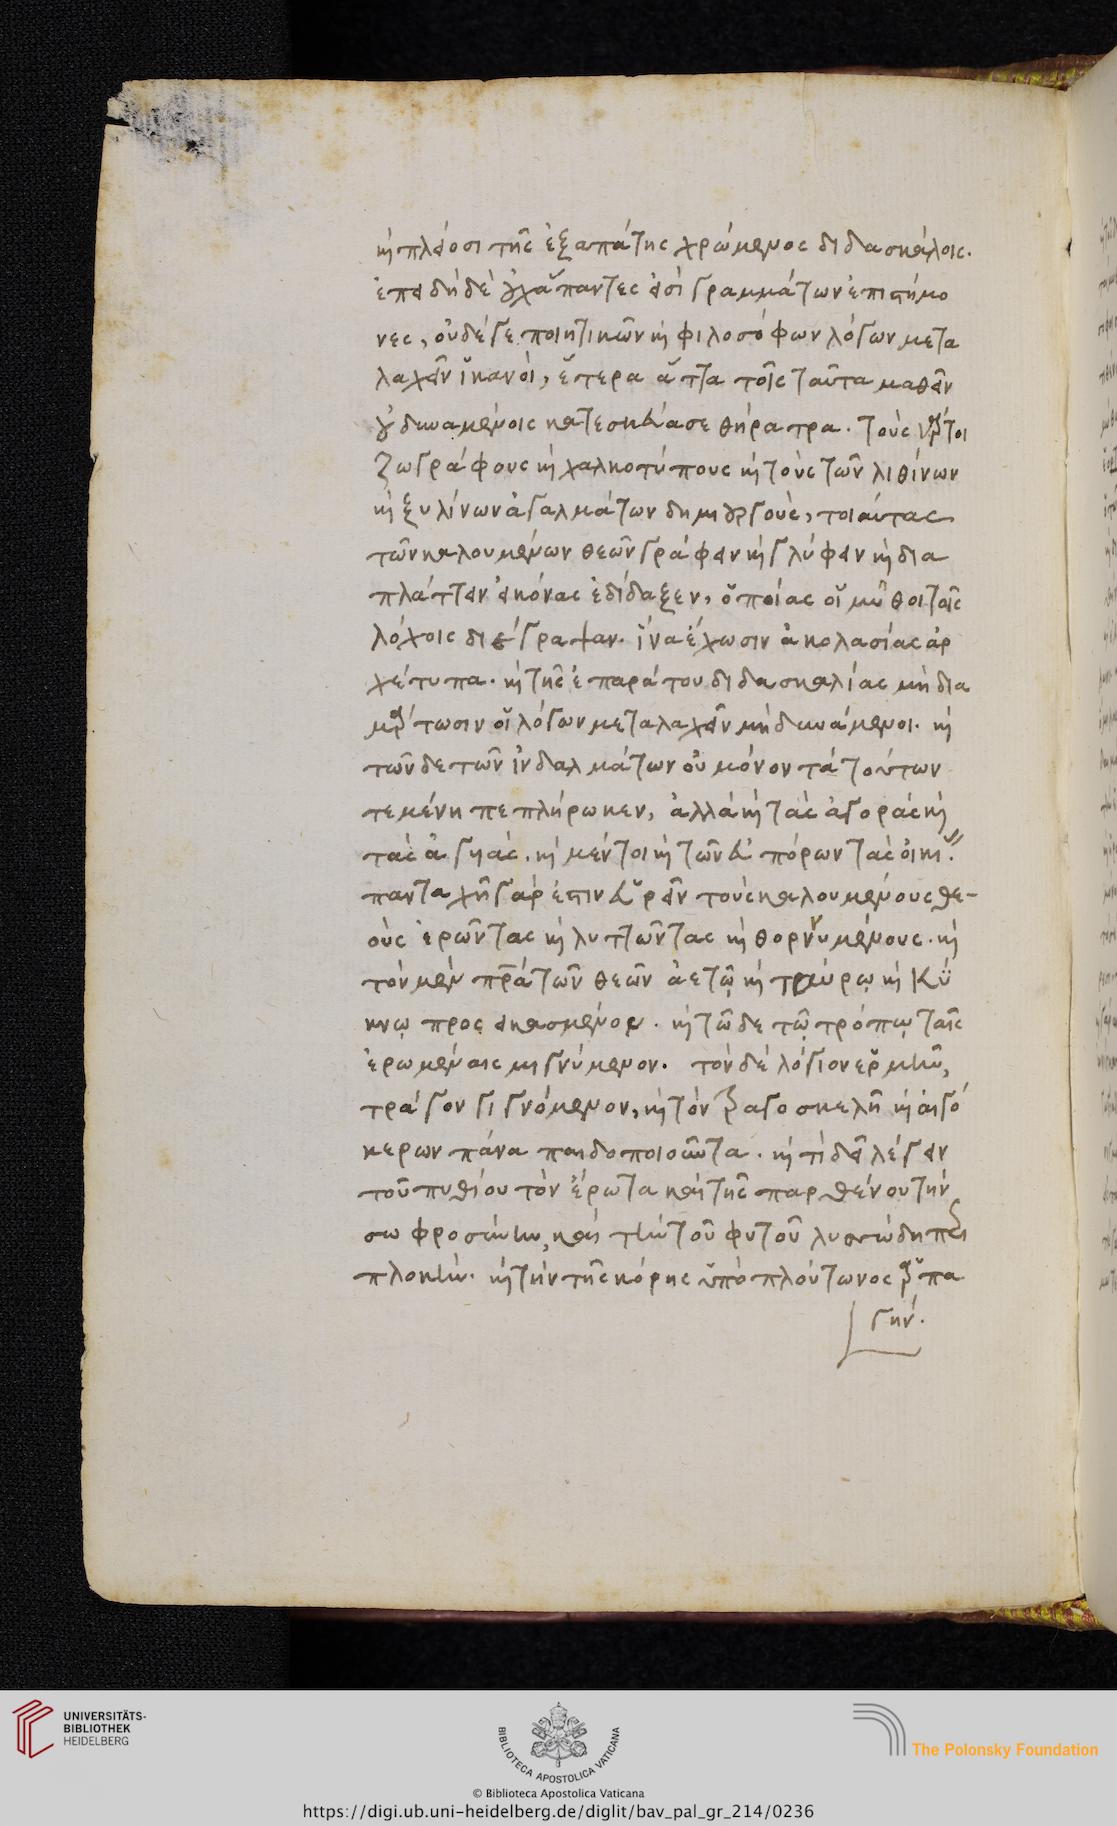 καὶ πλείοσι τῆς ἐξαπάτης χρώμενος διδασκάλοις.
ἐπειδὴ δὲ οὐχ ἅπαντες εἰσὶ γραμμάτων ἐπιστήμο
νες, οὐδέ γε ποιητικῶν καὶ φιλοσόφων λόγων μετα
λαχεῖν ἱκανοὶ, ἕτερα ἄττα τοῖς ταῦτα μαθεῖν
οὐ δυναμένοις κατεσκεύασε θήρατρα. τοὺς γάρτοι
ζωγράφους καὶ χαλκοτύπους καὶ τοὺς τῶν λιθίνων
καὶ ξυλίνων ἀγαλμάτων δημιουργοὺς, τοιαύτας
τῶν καλουμένων θεῶν γράφειν καὶ γλύφειν καὶ δια
πλάττειν εἰκόνας ἐδίδαξεν, ὁποίας οἱ μῦθοι τοῖς
λόχοις διέγραψαν. ἵνα ἔχωσιν ἀκολασίας ἀρ
χέτυπα. καὶ τῆς ἐπαράτου διδασκαλίας μὴ δια
μάρτωσιν οἱ λόγων μεταλαχεῖν μὴ δυνάμενοι. καὶ
τῶνδε τῶν ἰνδαλμάτων οὐ μόνον τὰ τούτων
τεμένη πεπλήρωκεν, ἀλλὰ καὶ τὰς ἀγορὰς καὶ
τὰς ἀγυιὰς. καὶ μέντοι καὶ τῶν εὐπόρων τὰς οἰκί
πανταχῆ γάρ ἐστιν εὑρεῖν τοὺς καλουμένους θε-
οὺς ἐρῶντας καὶ λυττῶντας καὶ θορνυμένους. καὶ
τὸν μὲν πρα τῶν θεῶν ἀετῷ καὶ ταύρῳ καὶ κύ
κνῳ προσεικασμένον. καὶ τῷδε τῷ τρόπῳ ταῖς
ἐρωμέναις μιγνύμενον. τὸν δὲ λόγιον ἑρμῆν,
τράγον γιγνόμενον, καὶ τὸν τραγοσκελῆ καὶ αἰγό
κερων πάνα παιδοποιοῦντα. καὶ τί δεῖ λέγειν
τοῦ πυθίου τὸν ἔρωτα καὶ τῆς παρθένου τὴν
σωφροσύνην, καὶ τὴν τοῦ φυτοῦ λυττώδη περι
πλοκὴν. καὶ τὴν τῆς κόρης ὑπὸ πλούτωνος ἁρπα
γήν.
UNIVERSITÄTS-
BIBLIOTHEK
HEIDELBERG
BIBLIOTECA APOSTOLICA VATICANA
The Polonsky Foundation
© Biblioteca Apostolica Vaticana
https://digi.ub.uni-heidelberg.de/diglit/bav_pal_gr_214/0236